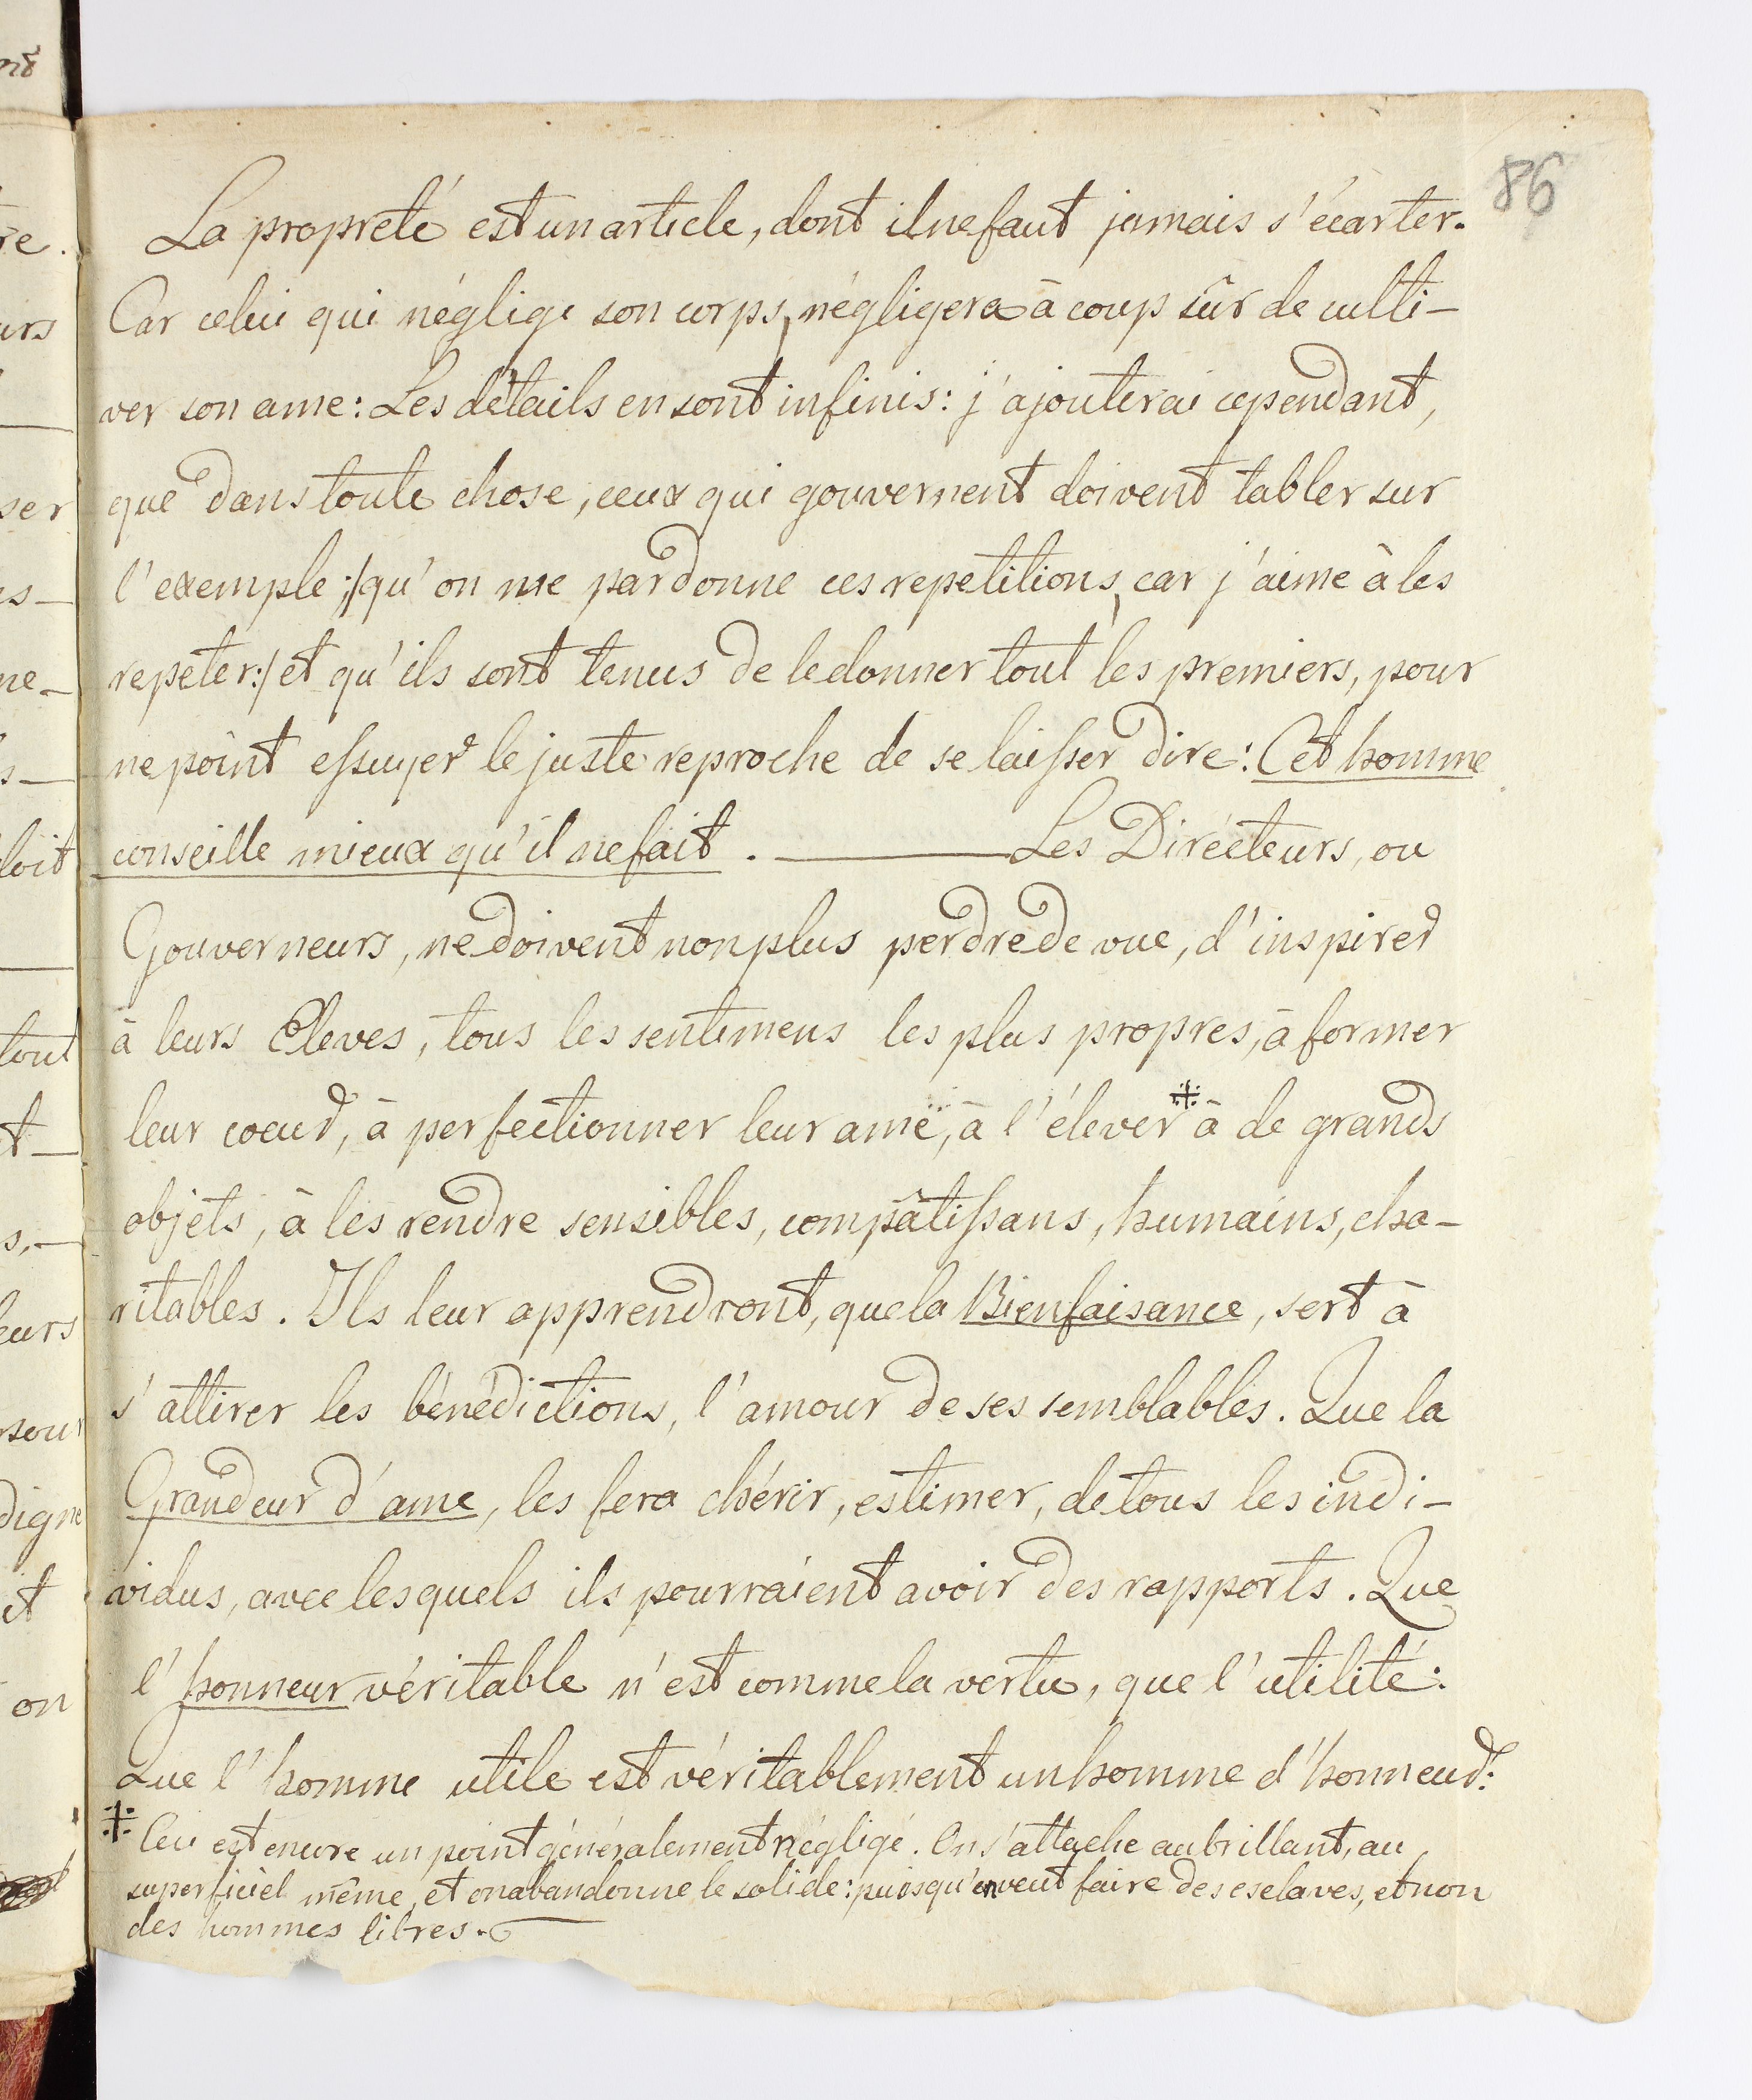 86
La propreté est un article, dont il ne faut jamais s'écarter.
Car celui qui néglige son corps, négligera à coup sûr de culti-
ver son ame: Les détails en sont infinis: j'ajouterai cependant,
que dans toute chose, ceux qui gouvernent doivent tabler sur
l'exemple :/ qu'on me pardonne ces repetitions, car j'aime à les
repeter :/ et qu'ils sont tenus de le donner tout les premiers, pour
ne point essuyer le juste reproche de se laisser dire: Cet homme
conseille mieux qu'il ne fait. — Les Directeurs, ou
Gouverneurs, ne doivent non plus perdre de vue, d'inspirer
à leurs Eleves, tous les sentimens les plus propres, à former
leur coeur, à perfectionner leur ame, à l'élever ※ à de grands
objets, à les rendre sensibles, compâtissans, humains, cha-
ritables. Ils leur apprendront, que la Bienfaisance, sert à
s'attirer les bénédictions, l'amour de ses semblables. Que la
Grandeur d'ame, les fera chérir, estimer, de tous les indi-
vidus, avec lesquels ils pourraient avoir des rapports. Que
l'honneur véritable n'est comme la vertu, que l'utilité:
Que l'homme utile est véritablement un homme d'honneur:
※ Ceci est encore un point généralement négligé. On s'attache au brillant, au
superficiel même, et on abandonne le solide: puisqu'on veut faire des esclaves, et non
des hommes libres.